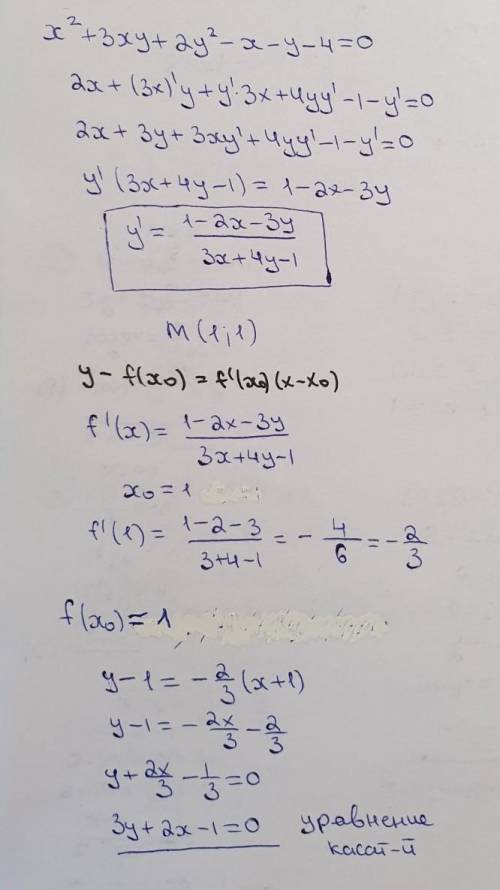 x² + 3xy + 2y² - x - y - 4 = 0
2x + (3x)'y + y'·3x + 4yy' - 1 - y' = 0
2x + 3y + 3xy' + 4yy' - 1 - y' = 0
y' (3x + 4y - 1) = 1 - 2x - 3y
y' = (1 - 2x - 3y) / (3x + 4y - 1)
M (1; 1)
y - f(x₀) = f'(x₀)(x - x₀)
f'(x) = (1 - 2x - 3y) / (3x + 4y - 1)
x₀ = 1
f'(1) = (1 - 2 - 3) / (3 + 4 - 1) = - 4/6 = - 2/3
f(x₀) = 1
y - 1 = - 2/3 (x + 1)
y - 1 = - 2x/3 - 2/3
y + 2x/3 - 1/3 = 0
3y + 2x - 1 = 0 уравнение
касат-й